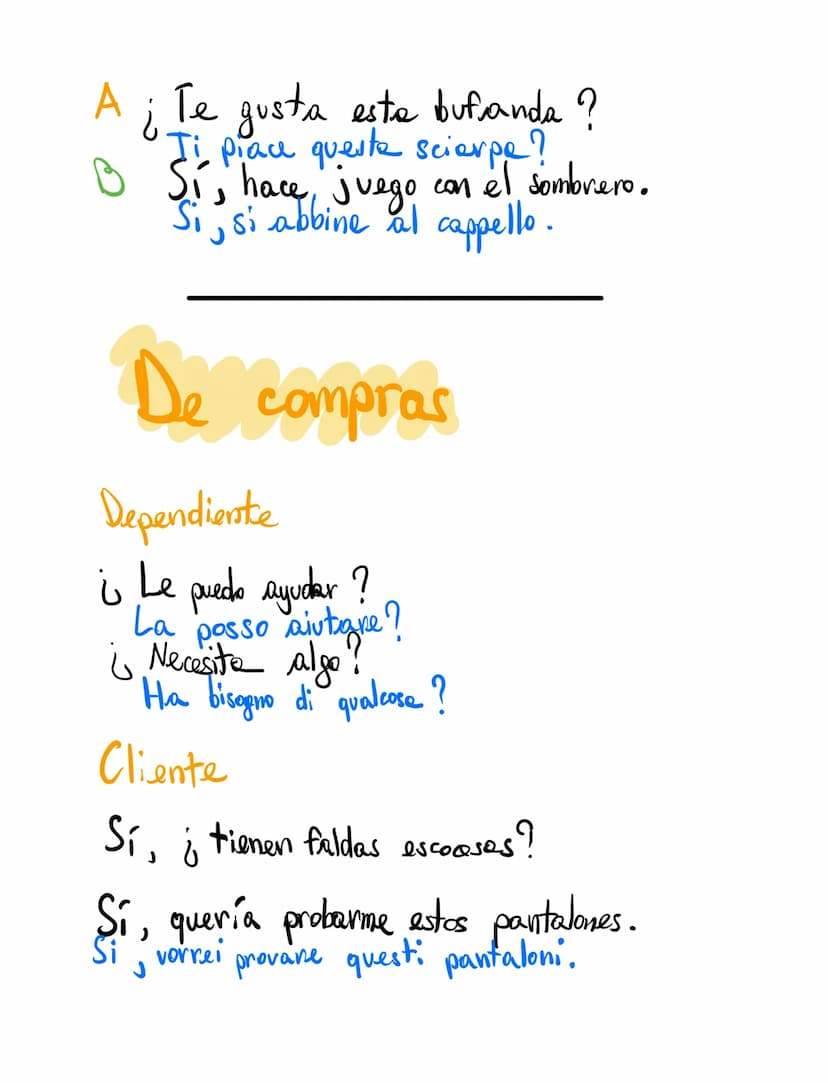 A ¿Te gusta esta bufanda?
Ti piace questa sciarpa?
B Sí, hace juego con el sombrero.
Si, si abbina al cappello.
De compras
Dependiente
¿Le puedo ayudar?
La posso aiutare?
¿Necesita algo?
Ha bisogno di qualcosa?
Cliente
Sí, ¿tienen faldas escocesas?
Sí, quería probarme estos pantalones.
Si, vorrei provare questi pantaloni.